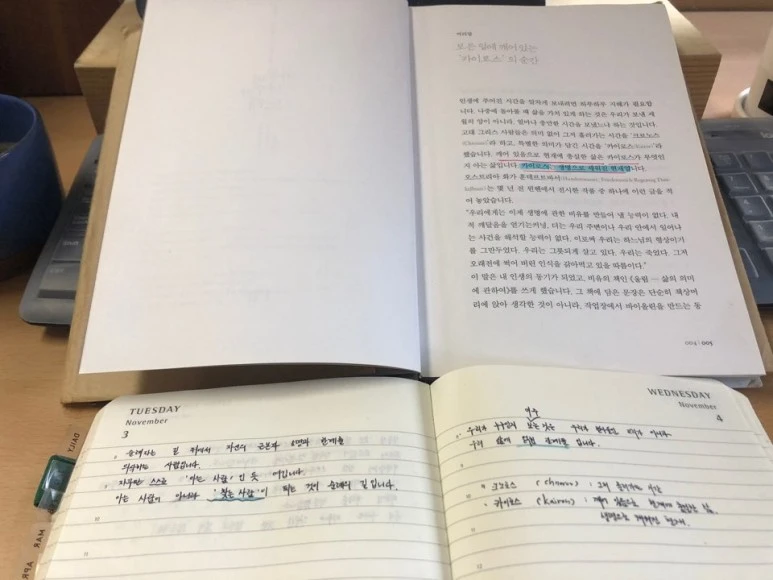 머리말
모든 일에 깨어 있는
'카이로스'의 순간
인생에 주어진 시간을 알차게 보내려면 하루하루 지혜가 필요합
니다. 나중에 돌아볼 때 삶을 가치 있게 하는 것은 우리가 보낸 세
월의 양이 아니라, 얼마나 충만한 시간을 보냈느냐 하는 것입니다.
고대 그리스 사람들은 의미 없이 그저 흘러가는 시간을 '크로노스
(Chronos)'라 하고, 특별한 의미가 담긴 시간을 '카이로스(Kairos)'라
했습니다. 깨어 있음으로 현재에 충실한 삶은 카이로스가 무엇인
지 아는 삶입니다. 카이로스, 생명으로 채워진 현재입니다.
오스트리아 화가 훈데르트바서
는 몇 년 전 빈에서 전시한 작품 중 하나에 이런 글을 적
어 놓았습니다.
"우리에게는 이제 생명에 관한 비유를 만들어 낼 능력이 없다. 내
적 깨달음을 얻기는커녕, 더는 우리 주변이나 우리 안에서 일어나
는 사건을 해석할 능력이 없다. 이로써 우리는 하느님의 형상이기
를 그만두었다. 우리는 그릇되게 살고 있다. 우리는 죽었다. 그저
오래전에 썩어 버린 인식을 갉아먹고 있을 따름이다."
이 말은 내 인생의 동기가 되었고, 비유의 책인 《울림 — 삶의 의미
에 관하여》를 쓰게 했습니다. 그 책에 담은 문장은 단순히 책상머
리에 앉아 생각한 것이 아니라, 작업장에서 바이올린을 만드는 동
004 | 005
TUESDAY
November
3
순례자는 길 위에서 자신의 근본과 소명과 한계를
사람입니다.
스스로 '아는 사람'인 듯
아는 사람이 아니라 '찾는 사람'이 되는 것이 순례의 길입니다.
WEDNESDAY
November
4
우리가
우리 삶의 관계를 합니다.
크로노스 (chronos) : 그저 흘러가는 시간
카이로스 (kairos) : 깨어 있음으로 현재에 충실한 삶,
생명으로 채워진 현재.
DAILY
MAR
APR